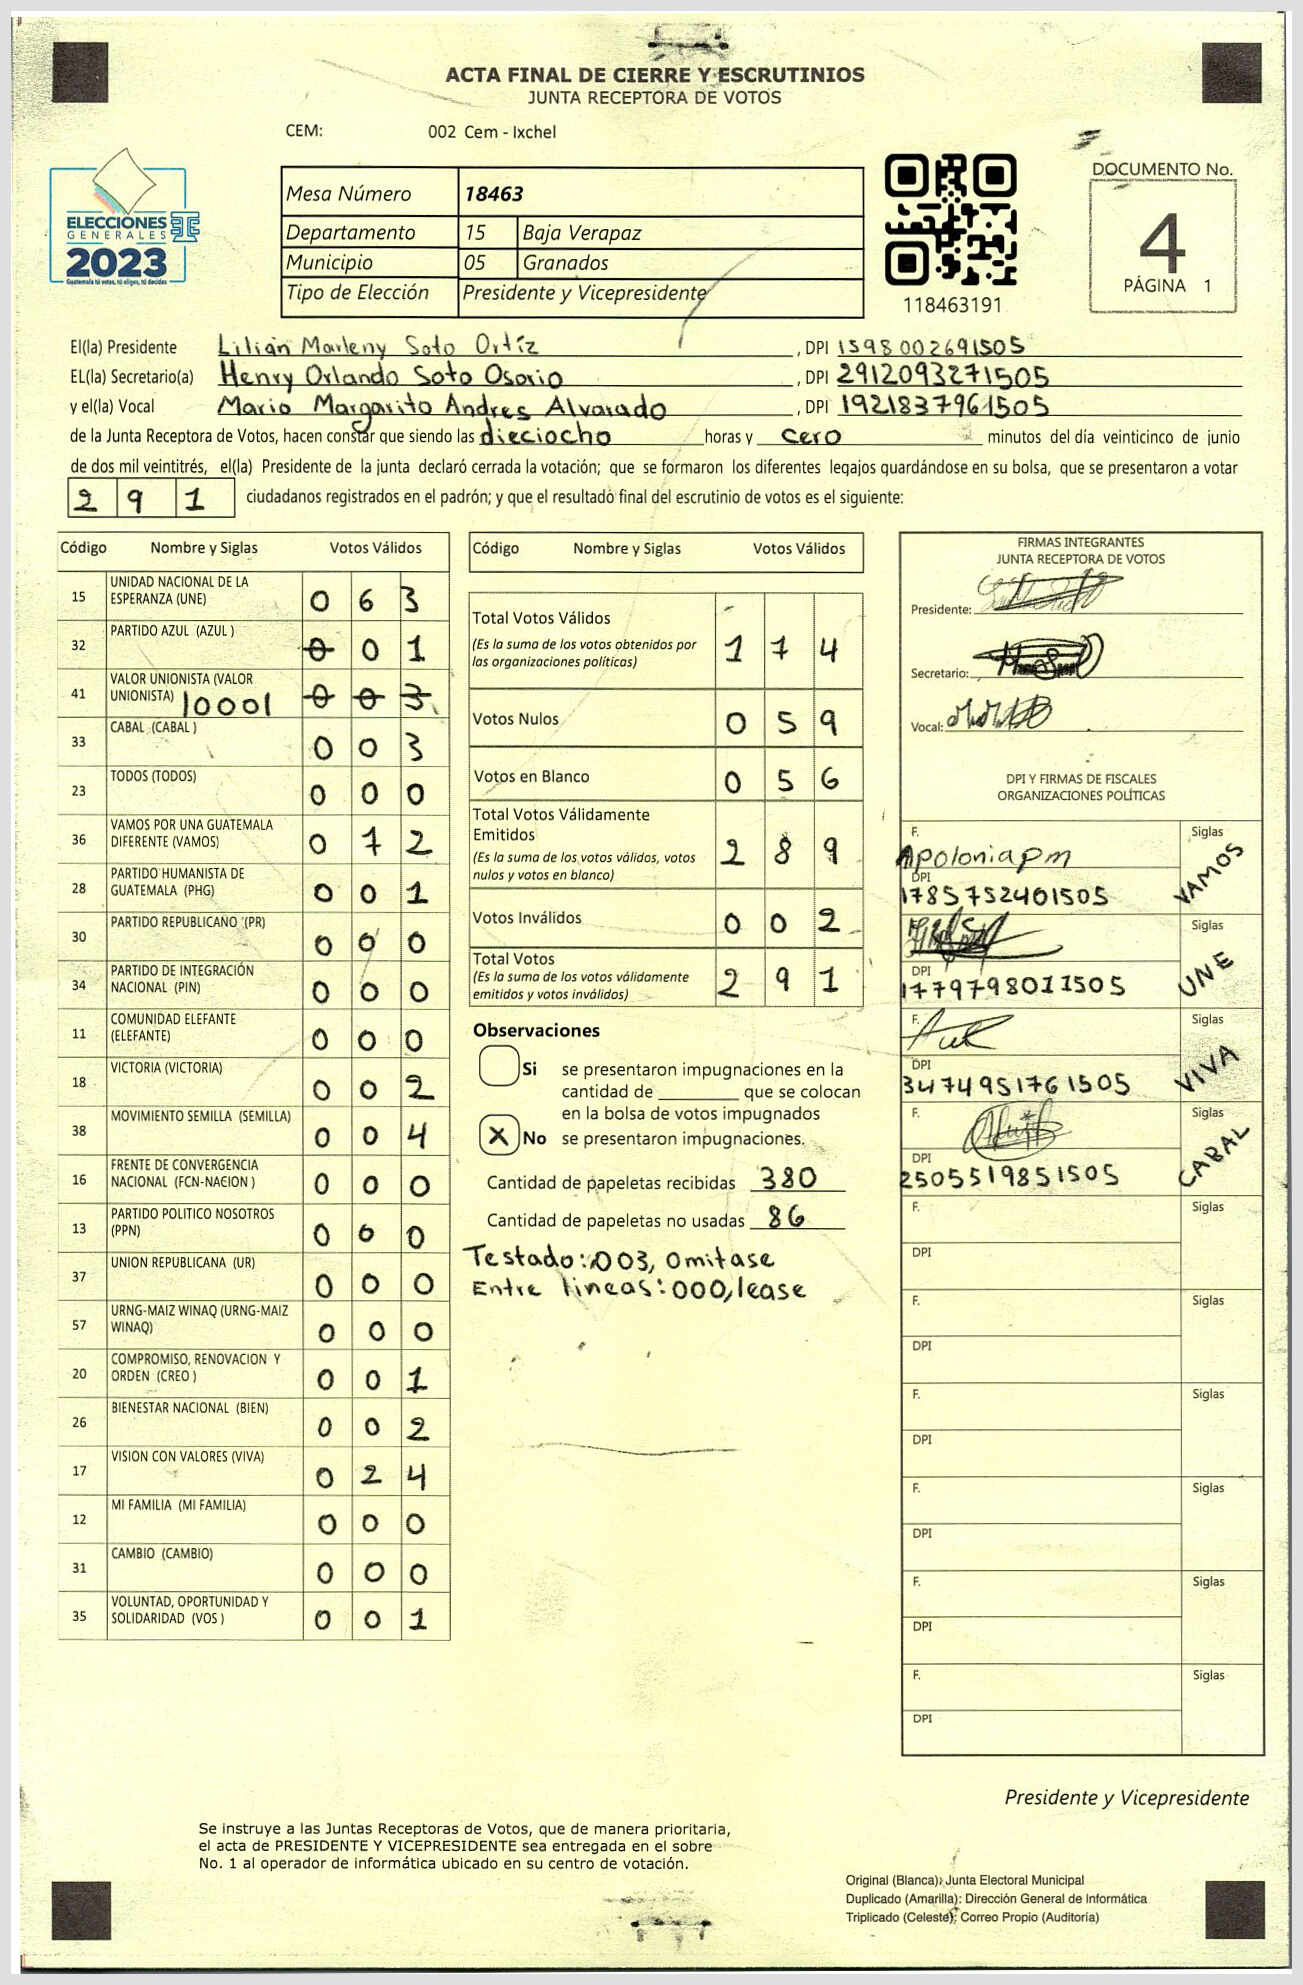 ACTA FINAL DE CIERRE Y ESCRUTINIOS
JUNTA RECEPTORA DE VOTOS
CEM: 002 Cem - Ixchel
ELECCIONES
GENERALES
2023
Guatemala tú votas, tú eliges, tú decides
Mesa Número 18463
Departamento 15 Baja Verapaz
Municipio 05 Granados
Tipo de Elección Presidente y Vicepresidente
118463191
DOCUMENTO No.
4
PÁGINA 1
El(la) Presidente Lilian Marleny Soto Ortíz , DPI 1598002691505
EL(la) Secretario(a) Henry Orlando Soto Osorio , DPI 2912093271505
y el(la) Vocal Mario Margarito Andres Alvarado , DPI 1921837961505
de la Junta Receptora de Votos, hacen constar que siendo las dieciocho horas y cero minutos del día veinticinco de junio
de dos mil veintitrés, el(la) Presidente de la junta declaró cerrada la votación; que se formaron los diferentes legajos guardándose en su bolsa, que se presentaron a votar
2 9 1 ciudadanos registrados en el padrón; y que el resultado final del escrutinio de votos es el siguiente:
Código Nombre y Siglas Votos Válidos
15 UNIDAD NACIONAL DE LA
ESPERANZA (UNE) 0 6 3
32 PARTIDO AZUL (AZUL ) 0 0 1
41 VALOR UNIONISTA (VALOR
UNIONISTA) 0 0 3
33 CABAL (CABAL ) 0 0 3
23 TODOS (TODOS) 0 0 0
36 VAMOS POR UNA GUATEMALA
DIFERENTE (VAMOS) 0 7 2
28 PARTIDO HUMANISTA DE
GUATEMALA (PHG) 0 0 1
30 PARTIDO REPUBLICANO (PR) 0 0 0
34 PARTIDO DE INTEGRACIÓN
NACIONAL (PIN) 0 0 0
11 COMUNIDAD ELEFANTE
(ELEFANTE) 0 0 0
18 VICTORIA (VICTORIA) 0 0 2
38 MOVIMIENTO SEMILLA (SEMILLA) 0 0 4
16 FRENTE DE CONVERGENCIA
NACIONAL (FCN-NACION ) 0 0 0
13 PARTIDO POLITICO NOSOTROS
(PPN) 0 0 0
37 UNION REPUBLICANA (UR) 0 0 0
57 URNG-MAIZ WINAQ (URNG-MAIZ
WINAQ) 0 0 0
20 COMPROMISO, RENOVACION Y
ORDEN (CREO ) 0 0 1
26 BIENESTAR NACIONAL (BIEN) 0 0 2
17 VISION CON VALORES (VIVA) 0 2 4
12 MI FAMILIA (MI FAMILIA) 0 0 0
31 CAMBIO (CAMBIO) 0 0 0
35 VOLUNTAD, OPORTUNIDAD Y
SOLIDARIDAD (VOS ) 0 0 1
Código Nombre y Siglas Votos Válidos
Total Votos Válidos
(Es la suma de los votos obtenidos por
las organizaciones políticas) 1 7 4
Votos Nulos 0 5 9
Votos en Blanco 0 5 6
Total Votos Válidamente
Emitidos
(Es la suma de los votos válidos, votos
nulos y votos en blanco) 2 8 9
Votos Inválidos 0 0 2
Total Votos
(Es la suma de los votos válidamente
emitidos y votos inválidos) 2 9 1
Observaciones
Si se presentaron impugnaciones en la
cantidad de ________ que se colocan
en la bolsa de votos impugnados
X No se presentaron impugnaciones.
Cantidad de papeletas recibidas 380
Cantidad de papeletas no usadas 86
Testado: 003, Omitase
Entre lineas: 000, lease
FIRMAS INTEGRANTES
JUNTA RECEPTORA DE VOTOS
Presidente:
Secretario:
Vocal:
DPI Y FIRMAS DE FISCALES
ORGANIZACIONES POLÍTICAS
F. Siglas
Apolonia pm VAMOS
DPI
1785752401505
F. Siglas
UNE
DPI
1779798011505
F. Siglas
VIVA
DPI
3474951761505
F. Siglas
CABAL
DPI
2505519851505
F. Siglas
DPI
F. Siglas
DPI
F. Siglas
DPI
F. Siglas
DPI
F. Siglas
DPI
F. Siglas
DPI
Presidente y Vicepresidente
Se instruye a las Juntas Receptoras de Votos, que de manera prioritaria,
el acta de PRESIDENTE Y VICEPRESIDENTE sea entregada en el sobre
No. 1 al operador de informática ubicado en su centro de votación.
Original (Blanca): Junta Electoral Municipal
Duplicado (Amarilla): Dirección General de Informática
Triplicado (Celeste): Correo Propio (Auditoría)